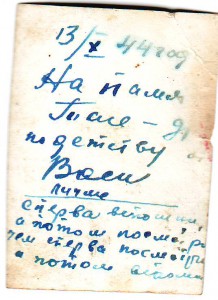 13/X 44 год
На памя
Тасе - др
по детству
Васи
лучше
сперва вспомни,
а потом посмотри
чем сперва посмотри
а потом вспомн